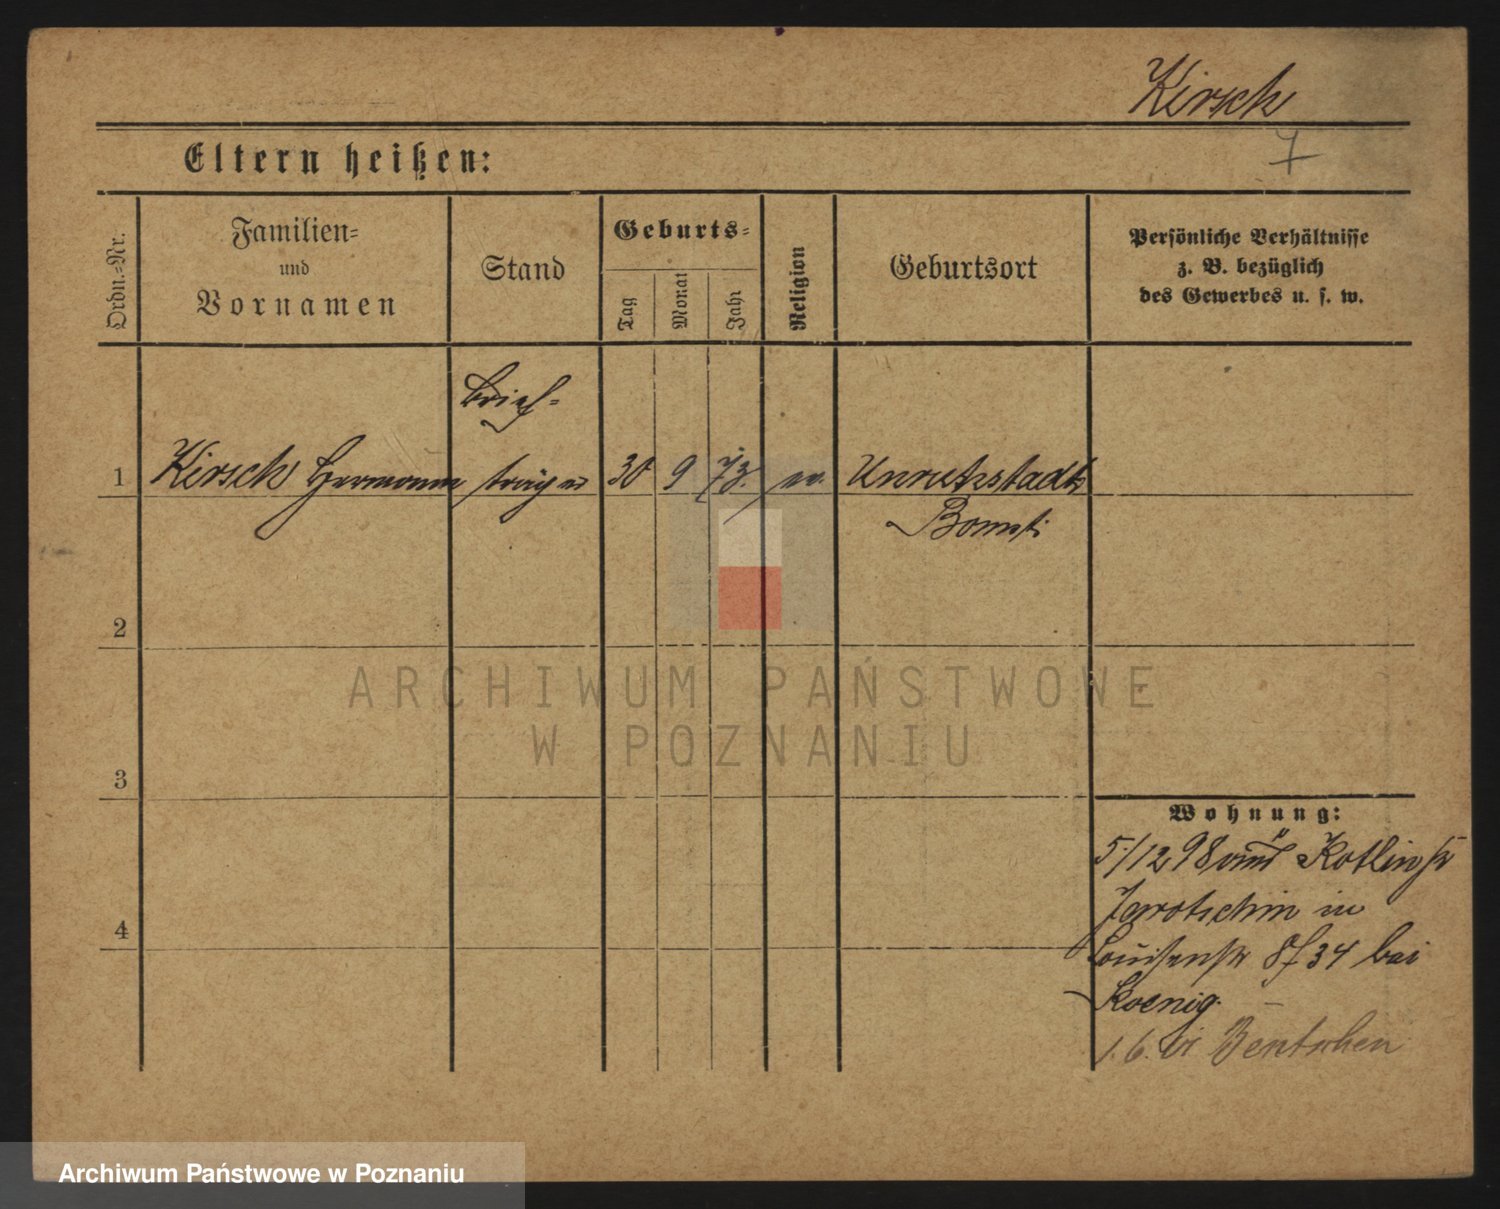 Kirsch
7
Eltern heißen:
Ordn.-Nr.
Familien-
und
Vornamen
Stand
Geburts-
Tag
Monat
Jahr
Religion
Geburtsort
Persönliche Verhältnisse
z. B. bezüglich
des Gewerbes u. s. w.
Brief-
1 Kirsch Hermann träger 30 9 73. ev. Unruhstadt
Bomst
2
ARCHIWUM PAŃSTWOWE
W POZNANIU
3
Wohnung:
5/12 98 Kotlin
Jarotschin in
4
Louisenstr 8 34 bei
Koenig.
1.6. Bentschen
Archiwum Państwowe w Poznaniu